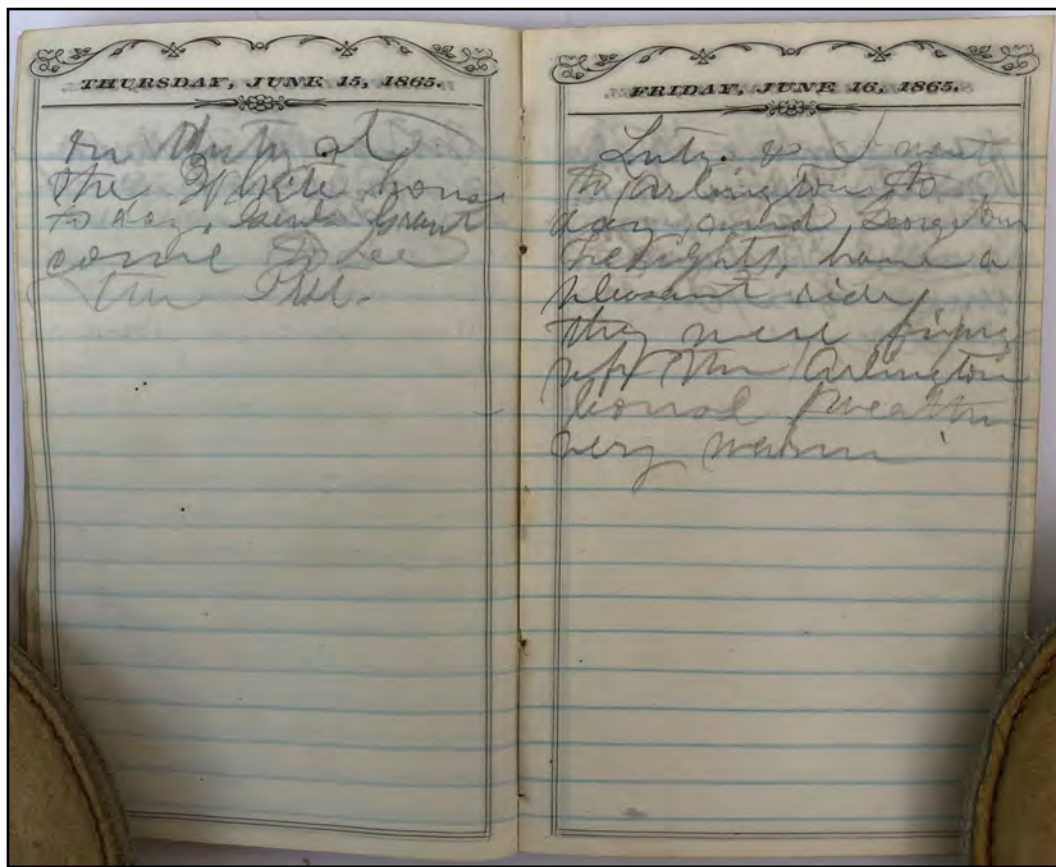 THURSDAY, JUNE 15, 1865.
on Duty at
the White house
to day, Genl Grant
come to see
the
FRIDAY, JUNE 16, 1865.
Lutz & I went
to Arlington to
day, and Georgetown
heights, have a
pleasant ride
they were fixing
up the Arlington
weather
very warm